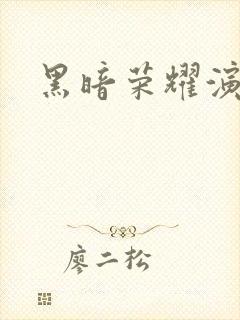 黑暗荣耀演
廖二松